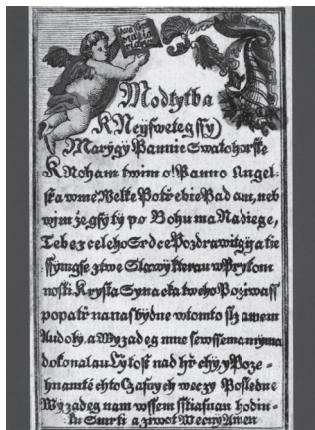 Modlytba
K Neyswetegssy
Marygy Pannie Swatohorske
K Noham twim o! Panno Angel-
ska wme Welke Potřebie Pad am, neb
wjm že gsy ty po Bohu ma Nadiege,
Tebe z celeho Srdce Pozdrawugi a tie
ssymgse z twe Slawy kterau w Prytom
nosti Krysta Syna
popatř na nas bydne w tomto slz awem
Audoly. a Wyzadeg mne
dokonalau Lytost nad hřychy, Poze-
hnamie techto Czasnych weczy Posledne
Wyzadeg nam wssem sstiastnau hodin-
ku Smrti a ziwot Wecny Amen